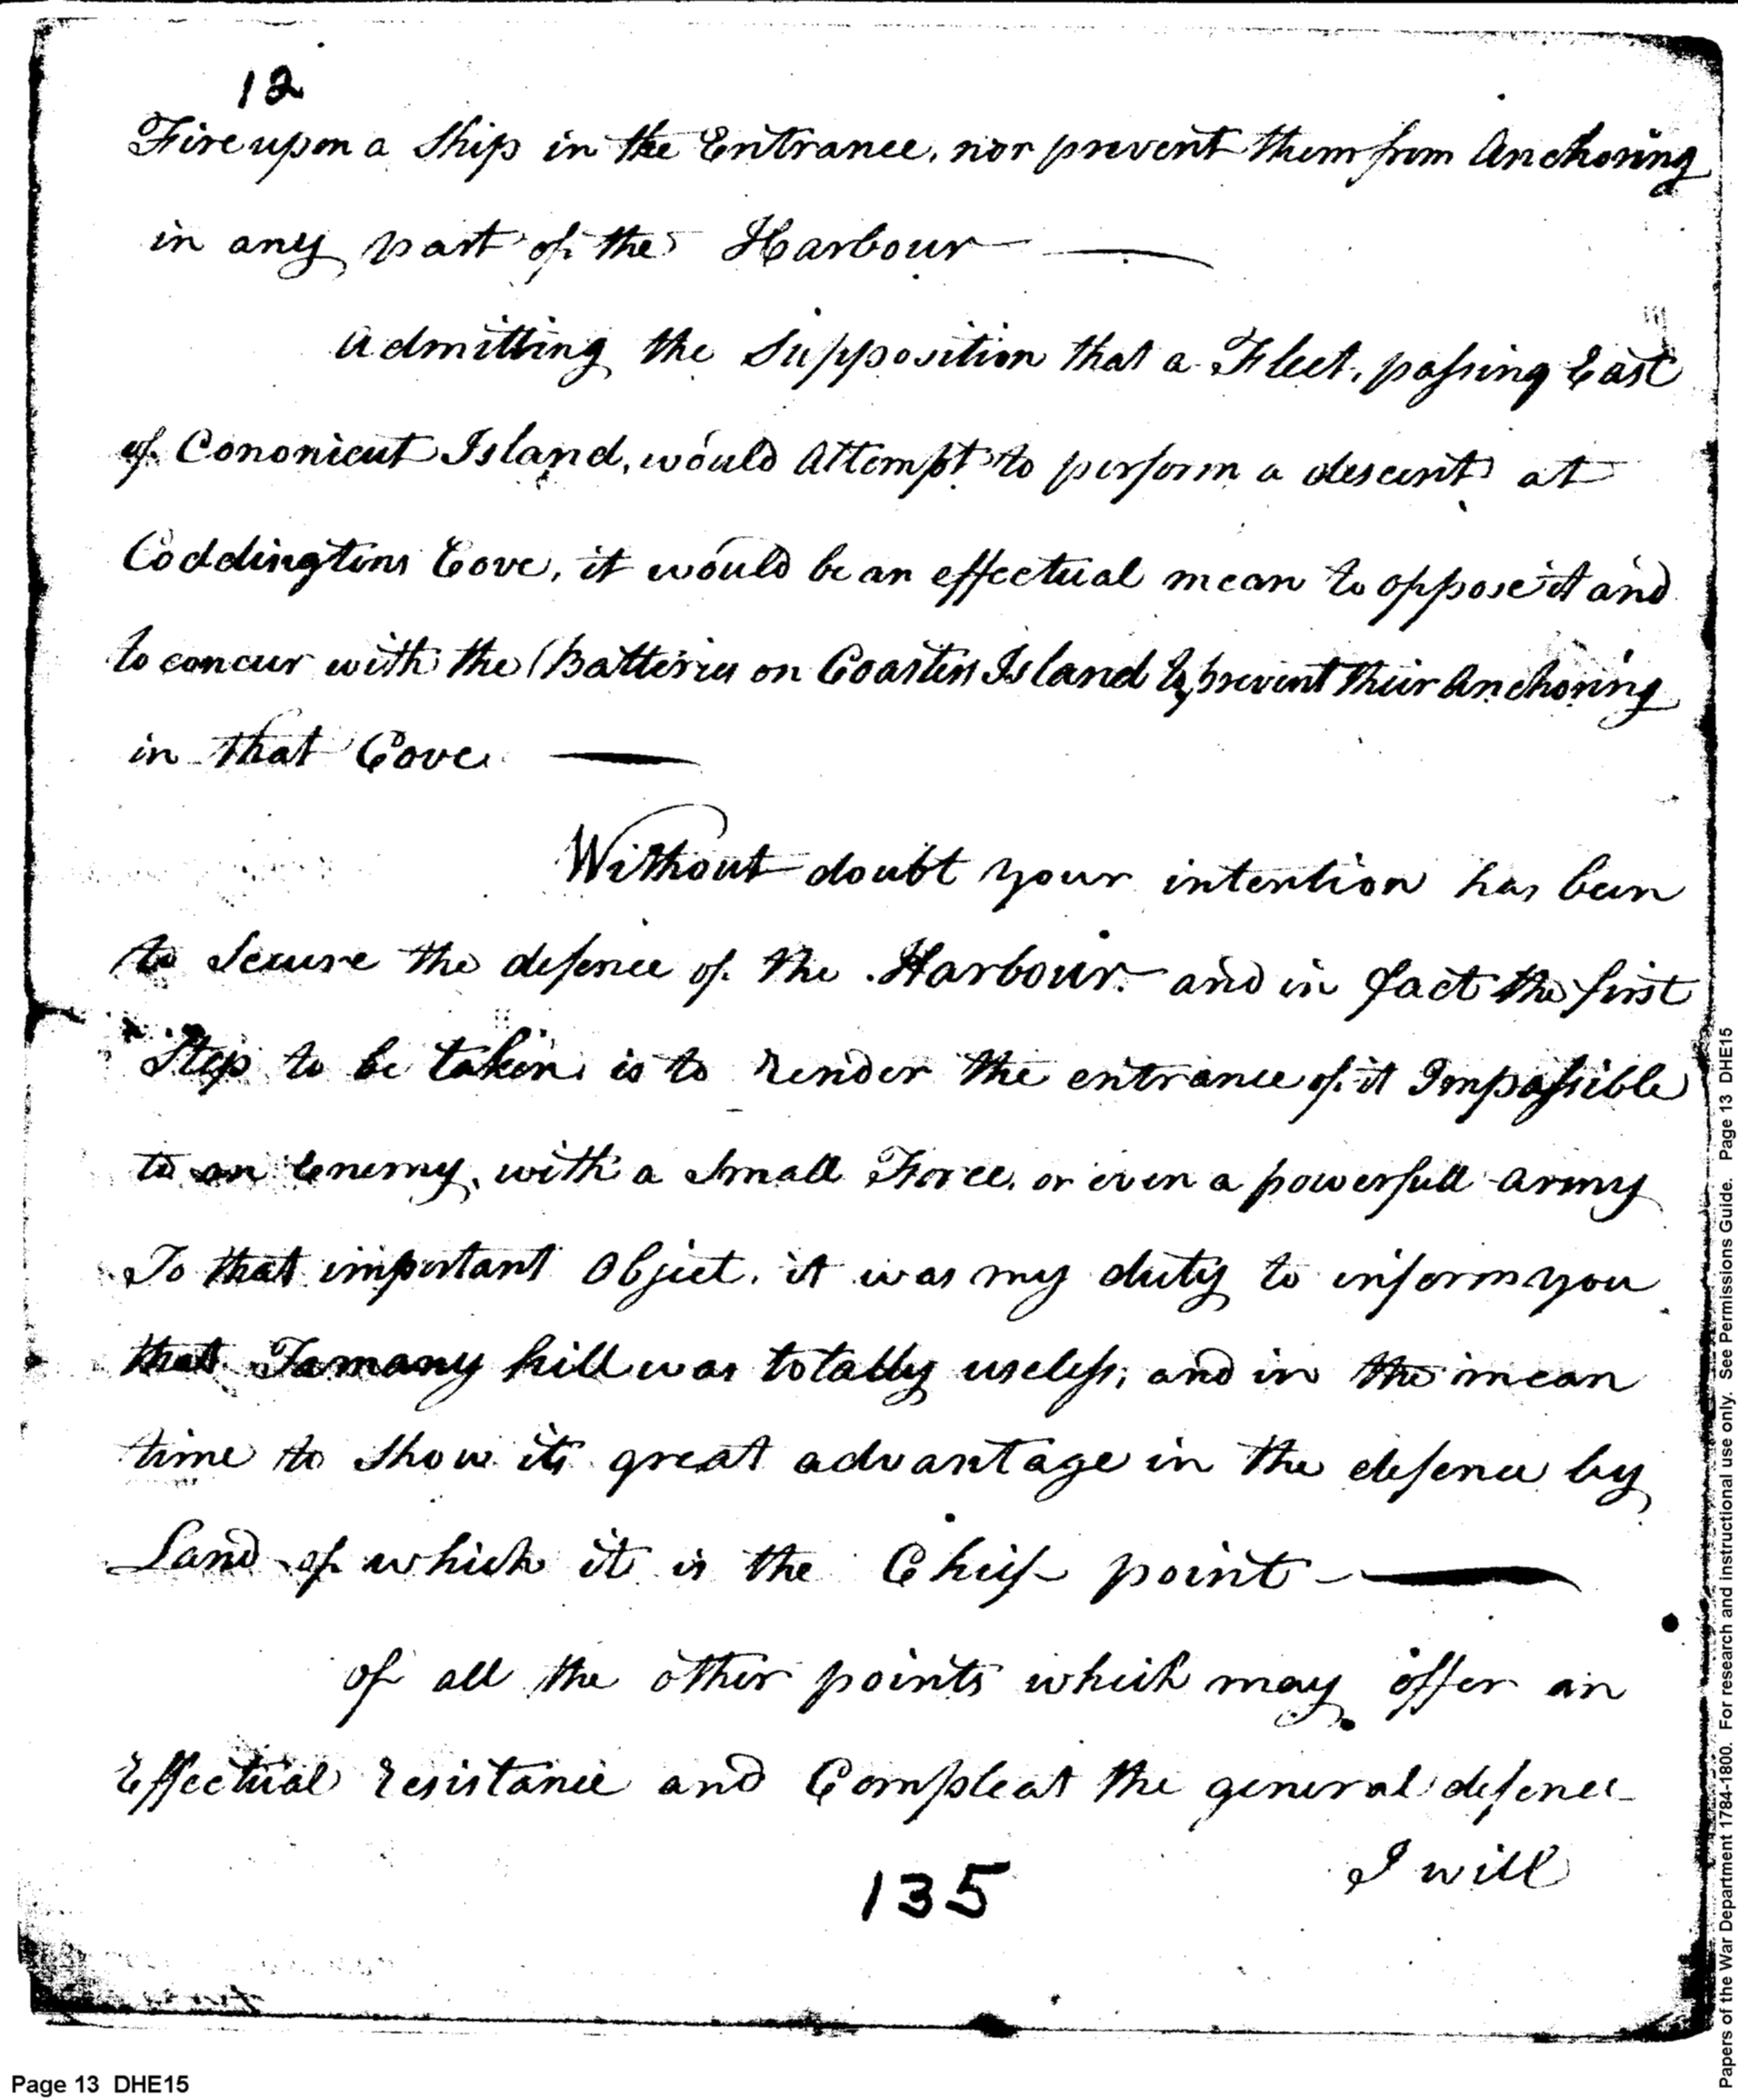 12
Fire upon a Ship in the Entrance, nor prevent them from Anchoring
in any part of the Harbour —
Admitting the Supposition that a Fleet, passing East
of Cononicut Island, would Attempt to perform a descent at
Coddingtons Cove, it would be an effectual mean to oppose it and
to concur with the Batteries on Coasters Island to prevent their Anchoring
in that Cove —
Without doubt your intention has been
to Secure the defence of the Harbour. and in fact the first
Step to be taken is to render the entrance of it Impassible
to an Enemy, with a Small Force, or even a powerfull army
To that important Object, it was my duty to inform you
that Tamany hill was totally useless; and in the mean
time to Show its great advantage in the defence by
Land of which it is the Chief point —
of all the other points which may offer an
Effectual resistance and Compleat the general defence
I will
135
Page 13 DHE15
Papers of the War Department 1784-1800. For research and instructional use only. See Permissions Guide. Page 13 DHE15